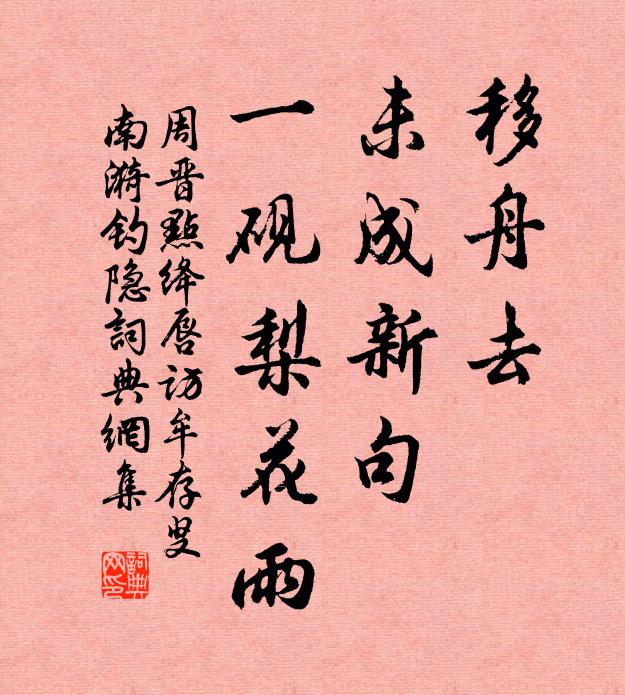 移舟去
未成新句
一砚梨花雨
周晋點绛唇访牟存叟
南漪钓隐詞典網集
詞典网印